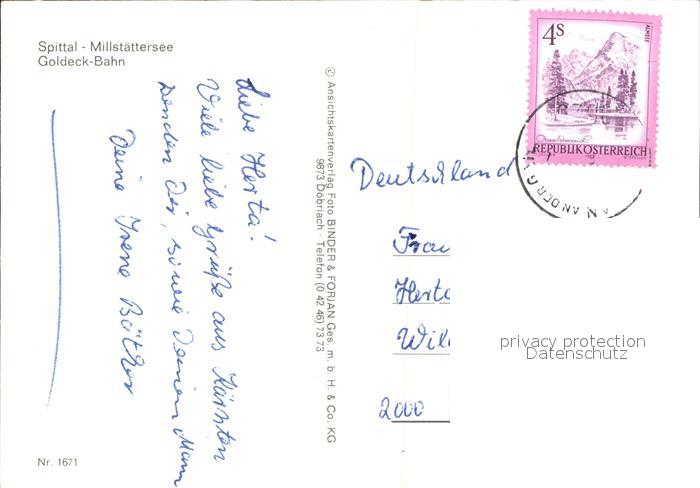 Spittal - Millstättersee
Goldeck-Bahn
Liebe Herta!
Viele liebe Grüße aus Kärnten
senden Dir, sowie Deinem Mann
Deine Irene
Nr. 1671
© Ansichtskartenverlag Foto BINDER & FORJAN Ges. m. b. H. & Co. KG
9873 Döbriach · Telefon (0 42 46) 73 73
4S
ALMSEE
REPUBLIK ÖSTERREICH
AN DER
Deutschland
Frau
Herta
2000
privacy protection
Datenschutz